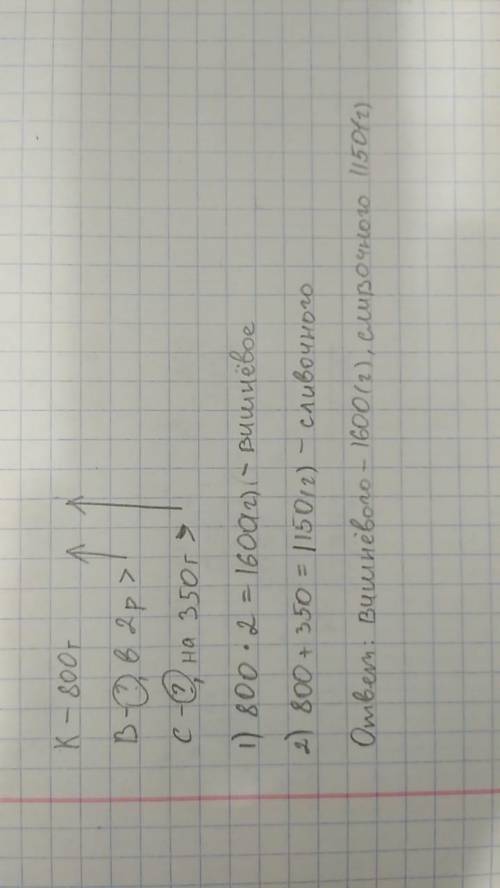 К – 800г
В – ?, в 2р >
С – ?, на 350г >
1) 800 · 2 = 1600(г) – вишнёвое
2) 800 + 350 = 1150(г) – сливочного
Ответ: вишнёвого – 1600(г), сливочного 1150(г)